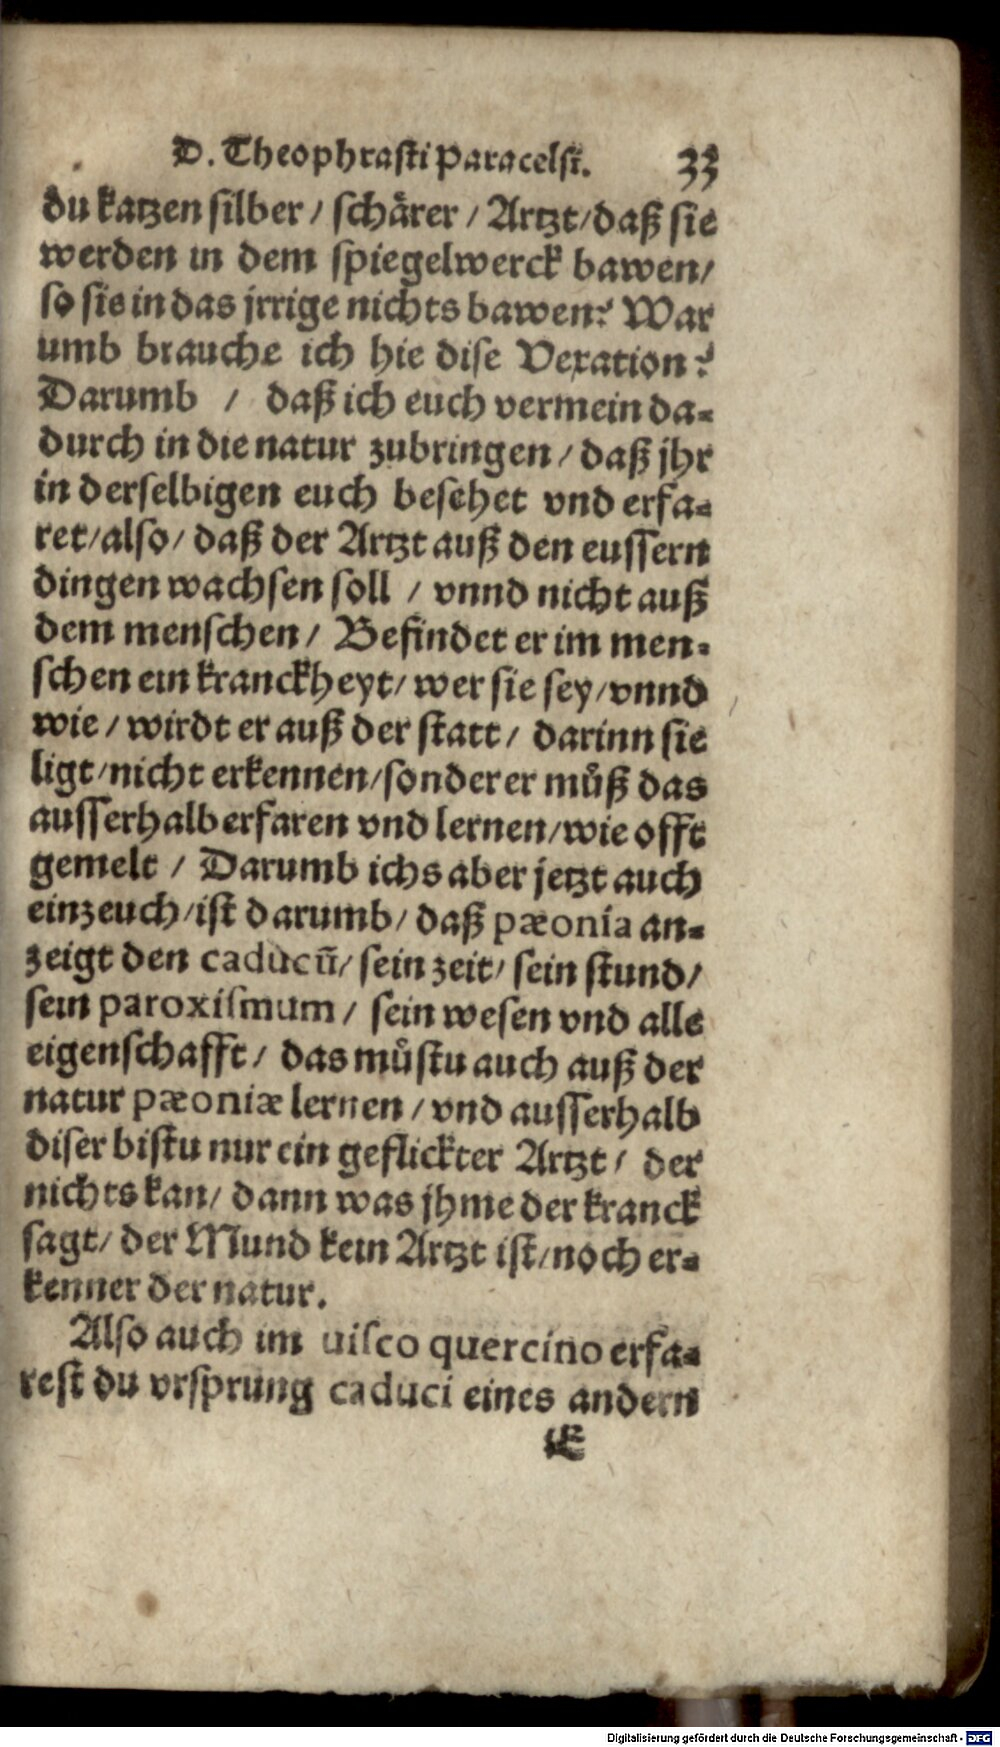 D. Theophrasti Paracelsi. 33
du katzen silber / schärer / Artzt / daß sie
werden in dem spiegelwerck bawen /
so sie in das jrrige nichts bawen? War
umb brauche ich hie dise Vexation?
Darumb / daß ich euch vermein da-
durch in die natur zubringen / daß jhr
in derselbigen euch besehet vnd erfa-
ret / also / daß der Artzt auß den eussern
dingen wachsen soll / vnnd nicht auß
dem menschen / Befindet er im men-
schen ein kranckheyt / wer sie sey / vnnd
wie / wirdt er auß der statt / darinn sie
ligt / nicht erkennen / sonder er můß das
ausserhalb erfaren vnd lernen / wie offt
gemelt / Darumb ichs aber jetzt auch
einzeuch / ist darumb / daß pæonia an-
zeigt den caducū / sein zeit / sein stund /
sein paroxismum / sein wesen vnd alle
eigenschafft / das můstu auch auß der
natur pæoniæ lernen / vnd ausserhalb
diser bistu nur ein geflickter Artzt / der
nichts kan / dann was jhme der kranck
sagt / der Mund kein Artzt ist / noch er-
kenner der natur.
Also auch im uisco quercino erfa-
rest du vrsprung caduci eines andern
E
Digitalisierung gefördert durch die Deutsche Forschungsgemeinschaft - DFG